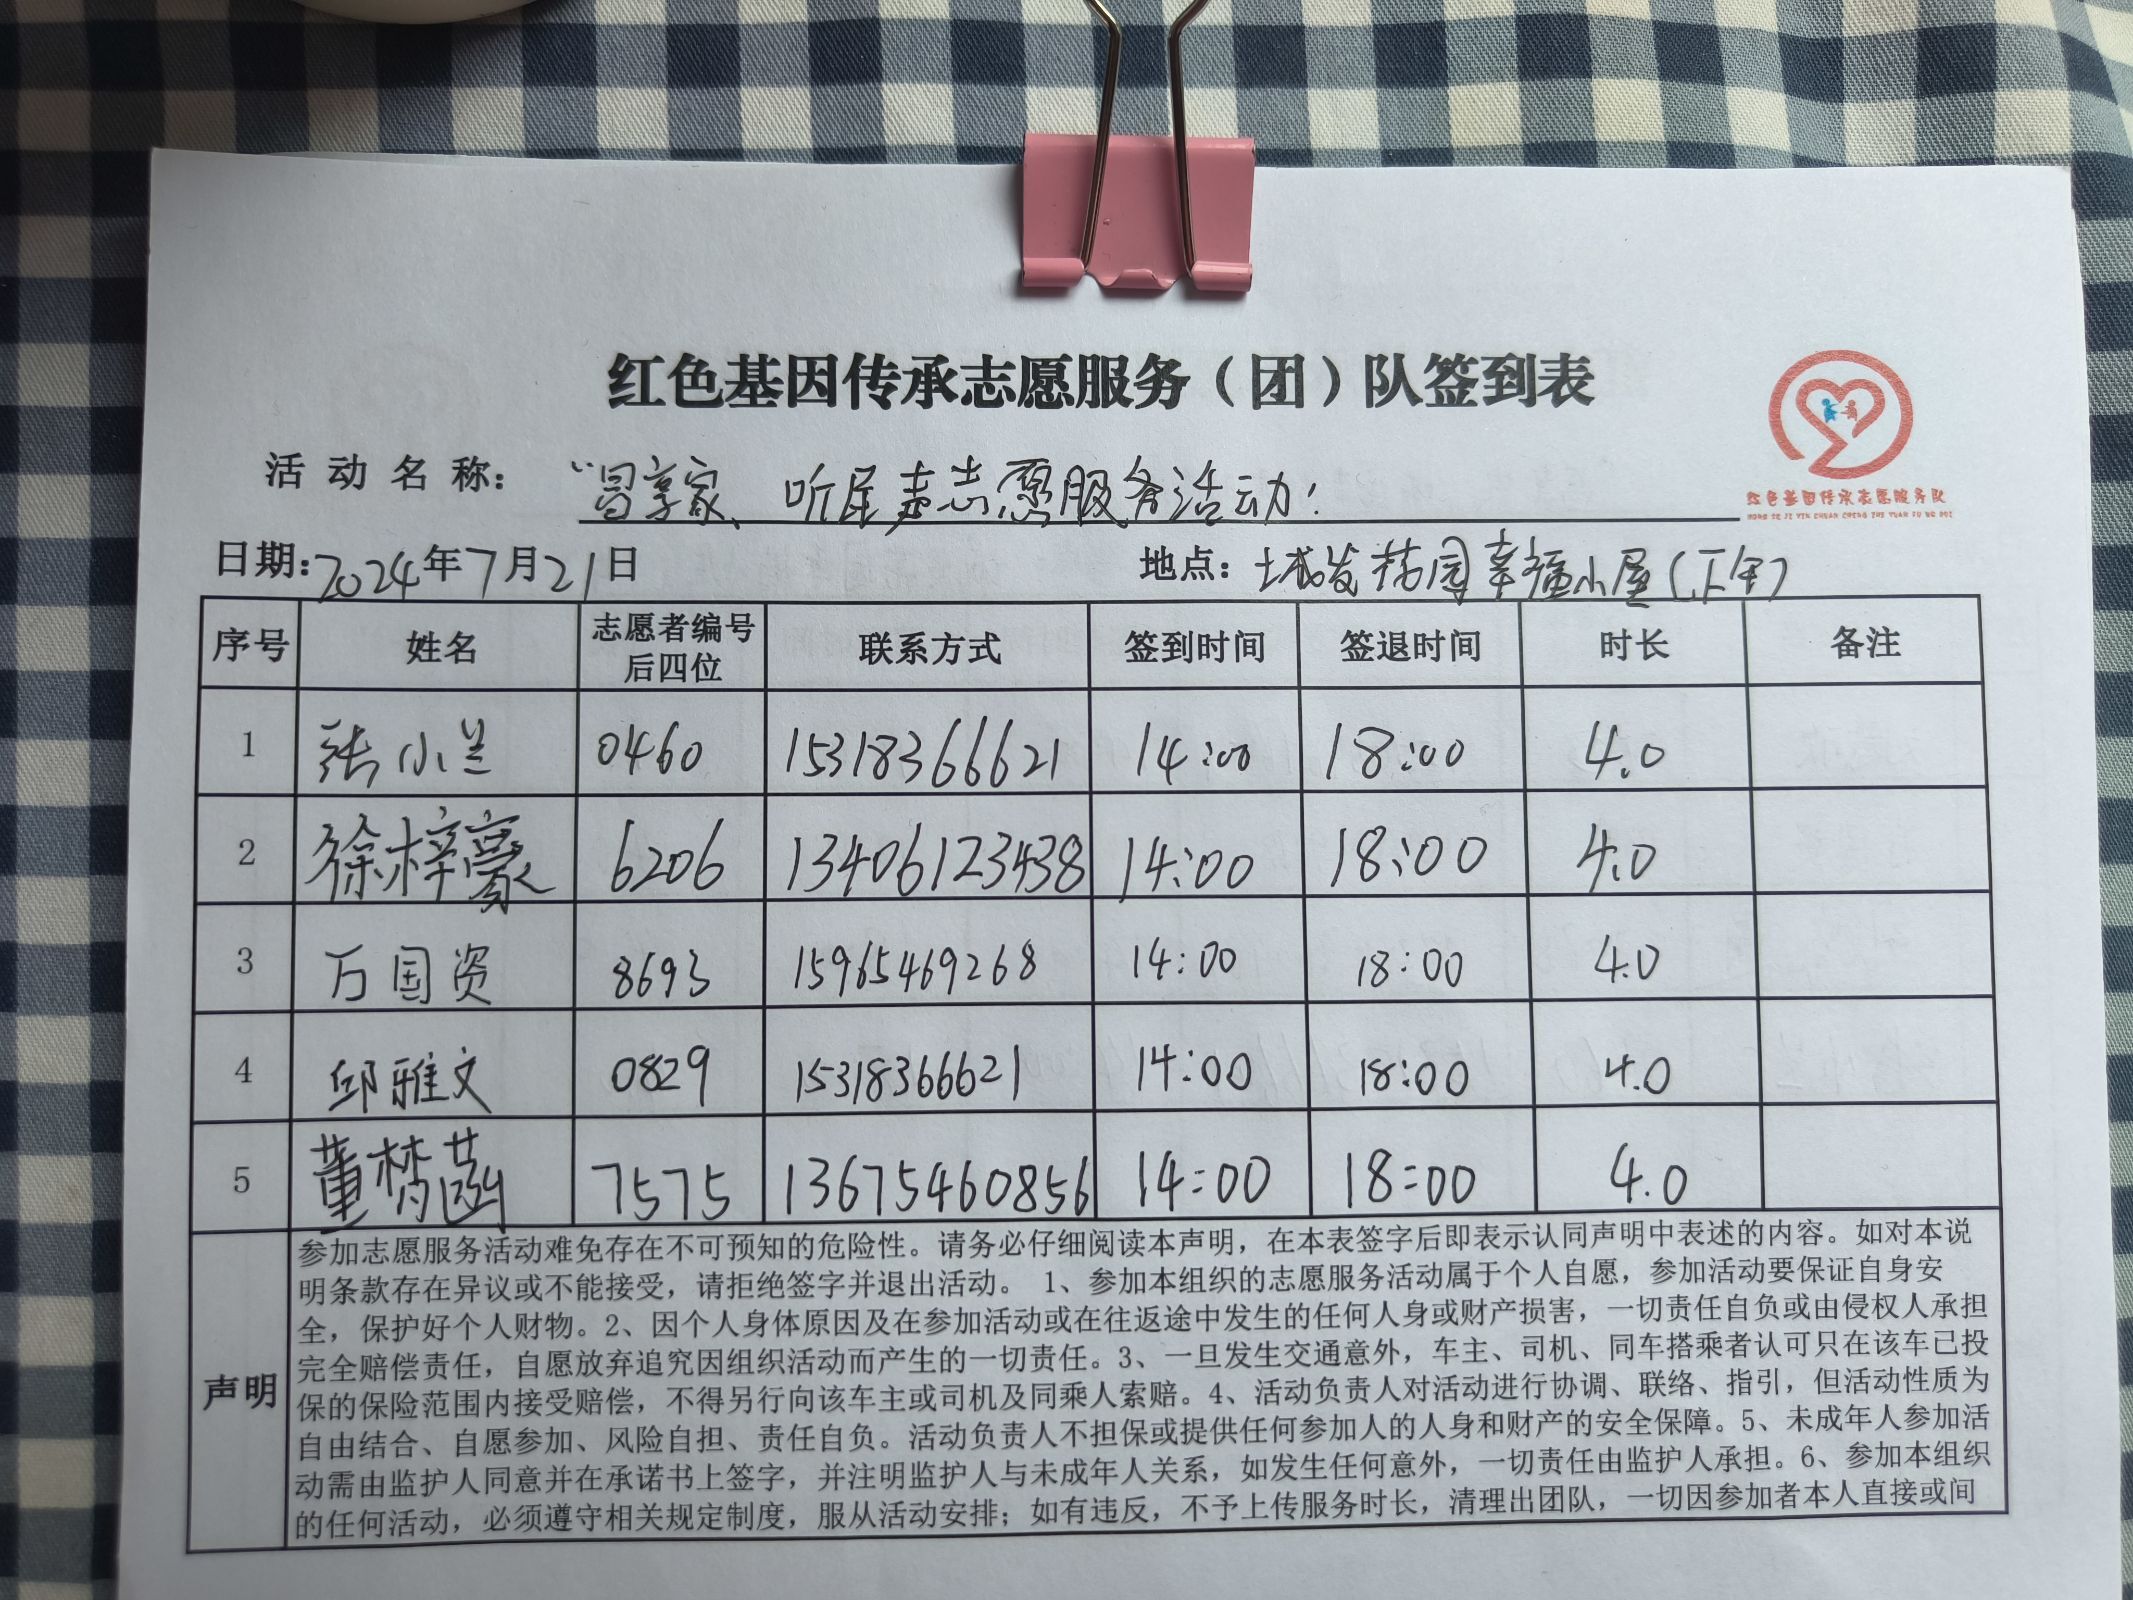 红色基因传承志愿服务（团）队签到表
红色基因传承志愿服务队
HONG SE JI YIN CHUAN CHENG ZHI YUAN FU WU DUI
活动名称： 享家、听 声志愿服务活动！
日期：2024年7月21日 地点： 城发 园幸福小屋（下午）
序号 姓名 志愿者编号后四位 联系方式 签到时间 签退时间 时长 备注
1 张小兰 0460 15318366621 14:00 18:00 4.0
2 徐梓豪 6206 13406123438 14:00 18:00 4.0
3 万国资 8693 15965469268 14:00 18:00 4.0
4 邱雅文 0829 15318366621 14:00 18:00 4.0
5 董梦菡 7575 13675460856 14:00 18:00 4.0
声明
参加志愿服务活动难免存在不可预知的危险性。请务必仔细阅读本声明，在本表签字后即表示认同声明中表述的内容。如对本说
明条款存在异议或不能接受，请拒绝签字并退出活动。 1、参加本组织的志愿服务活动属于个人自愿，参加活动要保证自身安
全，保护好个人财物。2、因个人身体原因及在参加活动或在往返途中发生的任何人身或财产损害，一切责任自负或由侵权人承担
完全赔偿责任，自愿放弃追究因组织活动而产生的一切责任。3、一旦发生交通意外，车主、司机、同车搭乘者认可只在该车已投
保的保险范围内接受赔偿，不得另行向该车主或司机及同乘人索赔。4、活动负责人对活动进行协调、联络、指引，但活动性质为
自由结合、自愿参加、风险自担、责任自负。活动负责人不担保或提供任何参加人的人身和财产的安全保障。5、未成年人参加活
动需由监护人同意并在承诺书上签字，并注明监护人与未成年人关系，如发生任何意外，一切责任由监护人承担。6、参加本组织
的任何活动，必须遵守相关规定制度，服从活动安排；如有违反，不予上传服务时长，清理出团队，一切因参加者本人直接或间